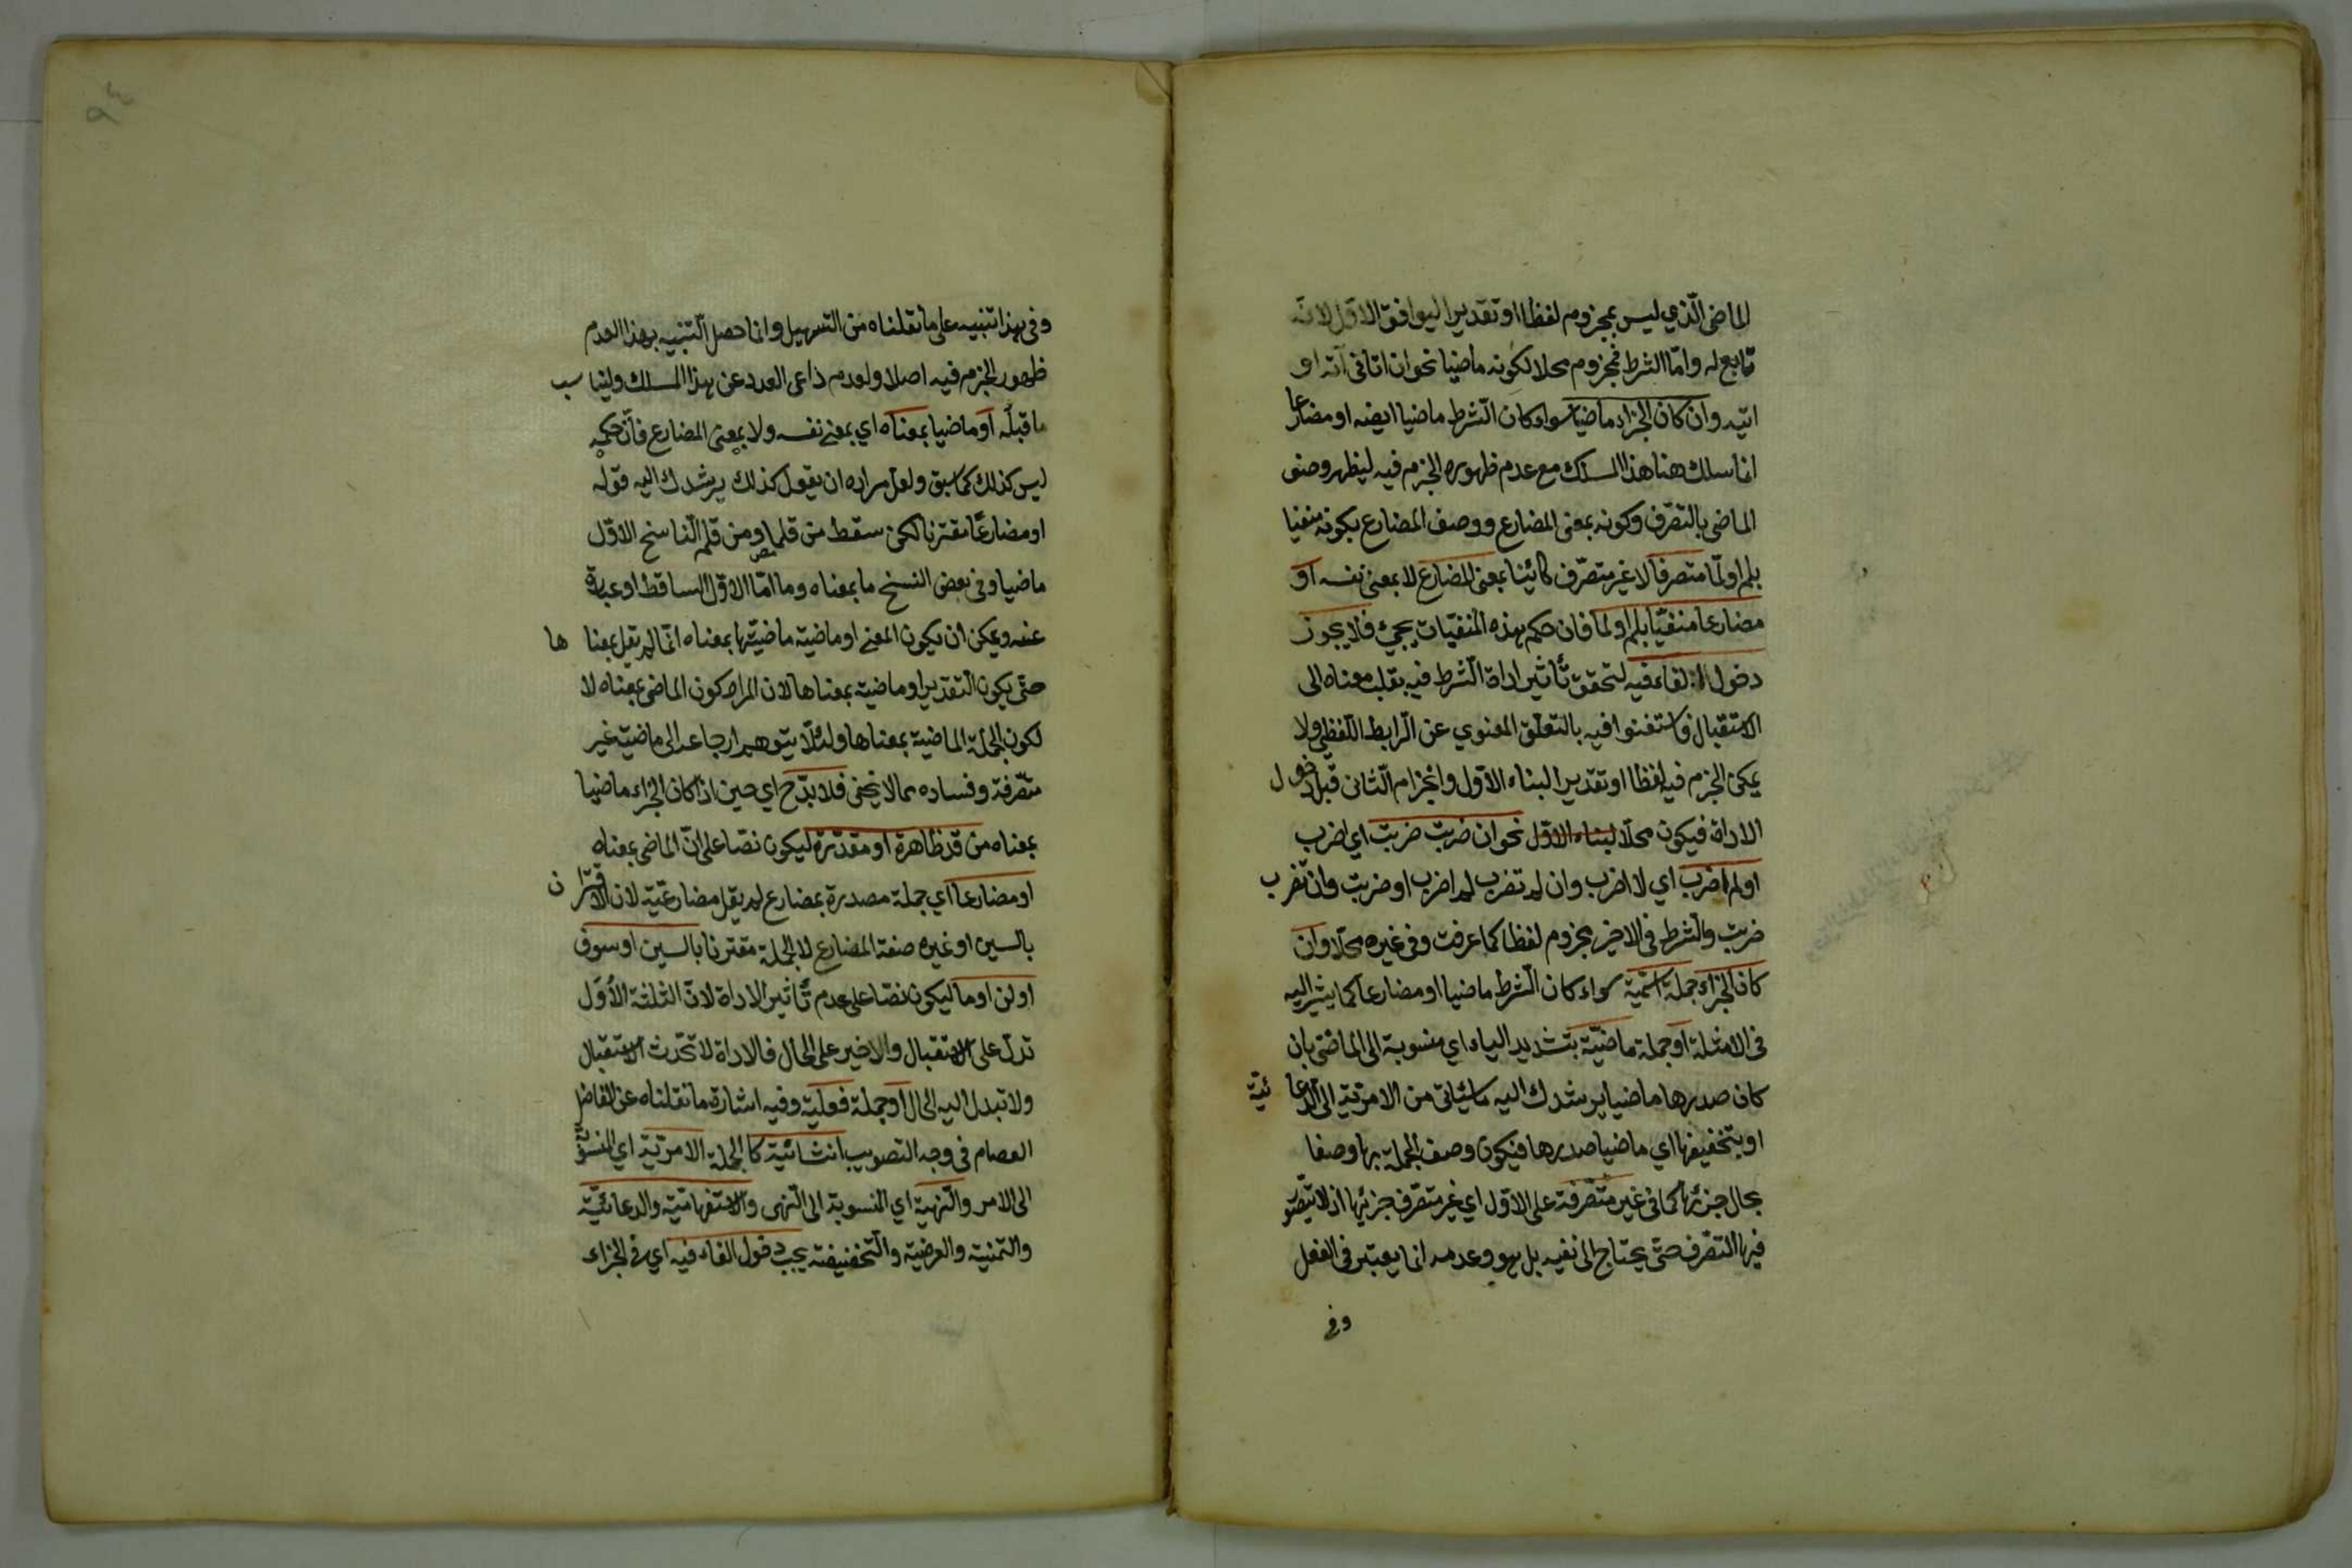 الماضى الّذي ليس بمجزوم لفظا او تقديرا ليوافق الاوّل لانّه
تابع له وامّا الشرط فمجزوم محلا لكونه ماضيا نحو ان اتانى آته او
اتيه وان كان الجزاء ماضيا سواء كان الشرط ماضيا ايضه او مضارعا
انما سلك هنا هذا المسلك مع عدم ظهوره الجزم فيه ليظهر وصف
الماضى بالتصرّف وكونه بمعنى المضارع ووصف المضارع بكونه منفيا
بلم او لمّا متصرفا لا غير متصرّف كائنا بمعنى المضارع لا بمعنى نفسه او
مضارعا منفيّا بلم او لما فان حكم هذه المنفيّات يجئ فلا يجوز
دخول الفاء فيه لتحقق تأثير اداة الشرط فيه بقلب معناه الى
الاستقبال فاستغنوا فيه بالتعلّق المعنوي عن الرّابط اللّفظي ولا
يمكن الجزم فيه لفظا او تقديرا لبناء الاوّل وانجزام الثّانى قبل دخول
الاداة فيكون محلّا لبناء الاوّل نحو ان ضربت ضربت اي اضرب
او لم اضرب اي لا اضرب وان لم تضرب لم اضرب او ضربت وان تضرب
ضربت والشرط فى الاخير مجزوم لفظا كما عرفت وفى غيره محلّا وان
كان الجزاء جملة اسميّة سواء كان الشرط ماضيا او مضارعا كما يشير اليه
فى الامثلة او جملة ماضيّة بتشديد الياء اي منسوبة الى الماضى بان
كان صدرها ماضيا يرشدك اليه ما سيأتى من الامريّة الى الدّعائيّة
او بتخفيفها اي ماضيا صدرها فيكون وصف الجملة بها وصفا
بحال جزئها كما فى غير متصرّفة على الاوّل اي غير متصرّف جزئها اذ لا يتصّور
فيها التصرّف حتّى يحتاج الى نفيه بل هو وعدمه انما يعتبر فى الفعل
وفى
٩٤
وفى هذا تنبيه على ما نقلناه من التسهيل وانما حصل التّنبيه بهذا لعدم
ظهور الجزم فيه اصلا ولعدم داعى العدد عن هذا المسلك وليناسب
ما قبله او ماضيا بمعناه اي بمعنى نفسه ولا بمعنى المضارع فانّ حكمه
ليس كذلك كما سبق ولعل مراده ان يقول كذلك يرشدك اليه قوله
او مضارعًا مقترنا لكن سقط من قلم او من قلم النّاسخ الاوّل
ماضيا وفى بعض النسخ ما بمعناه وما امّا الاوّل الساقط او عبارة
عنه ويمكن ان يكون المعنى او ماضية ماضيّتها بمعناه انّما لم يقل بمعناها
حتّى يكون التقدير او ماضية بمعناها لان المراد كون الماضى بمعناه لا
لكون الجملة الماضية بمعناها ولئلّا يتوهم ارجاعه الى ماضية غير
متصّرفة وفساده مما لا يخفى فلا بدّ ح اي حين اذا كان الجزاء ماضيا
بمعناه من قد ظاهرة او مقدّرة ليكون نصّا على انّ الماضى بمعناه
او مضارعا اي جملة مصدرة بمضارع لم يقل مضارعيّة لان الاقتران
بالسين او غيره صفة المضارع لا الجملة مقترنا بالسين او سوف
او لن او ما ليكون نصّا على عدم تأثير الاداة لانّ الثلثة الأوَل
تدلّ على الاستقبال والاخير على الحال فالاداة لا تحدث الاستقبال
ولا تبدل اليه الحال او جملة فعليّة وفيه اشارة ما نقلناه عن الفاضل
العصام فى وجه التصويب انشائيّة كالجملة الامريّة اي المنسوبة
الى الامر والنّهيّة اي المنسوبة الى النّهى والاستفهاميّة والدعائيّة
والتمنية والعرضية والتّحضيضة يجب دخول الفاء فيه اي فى الجزاء